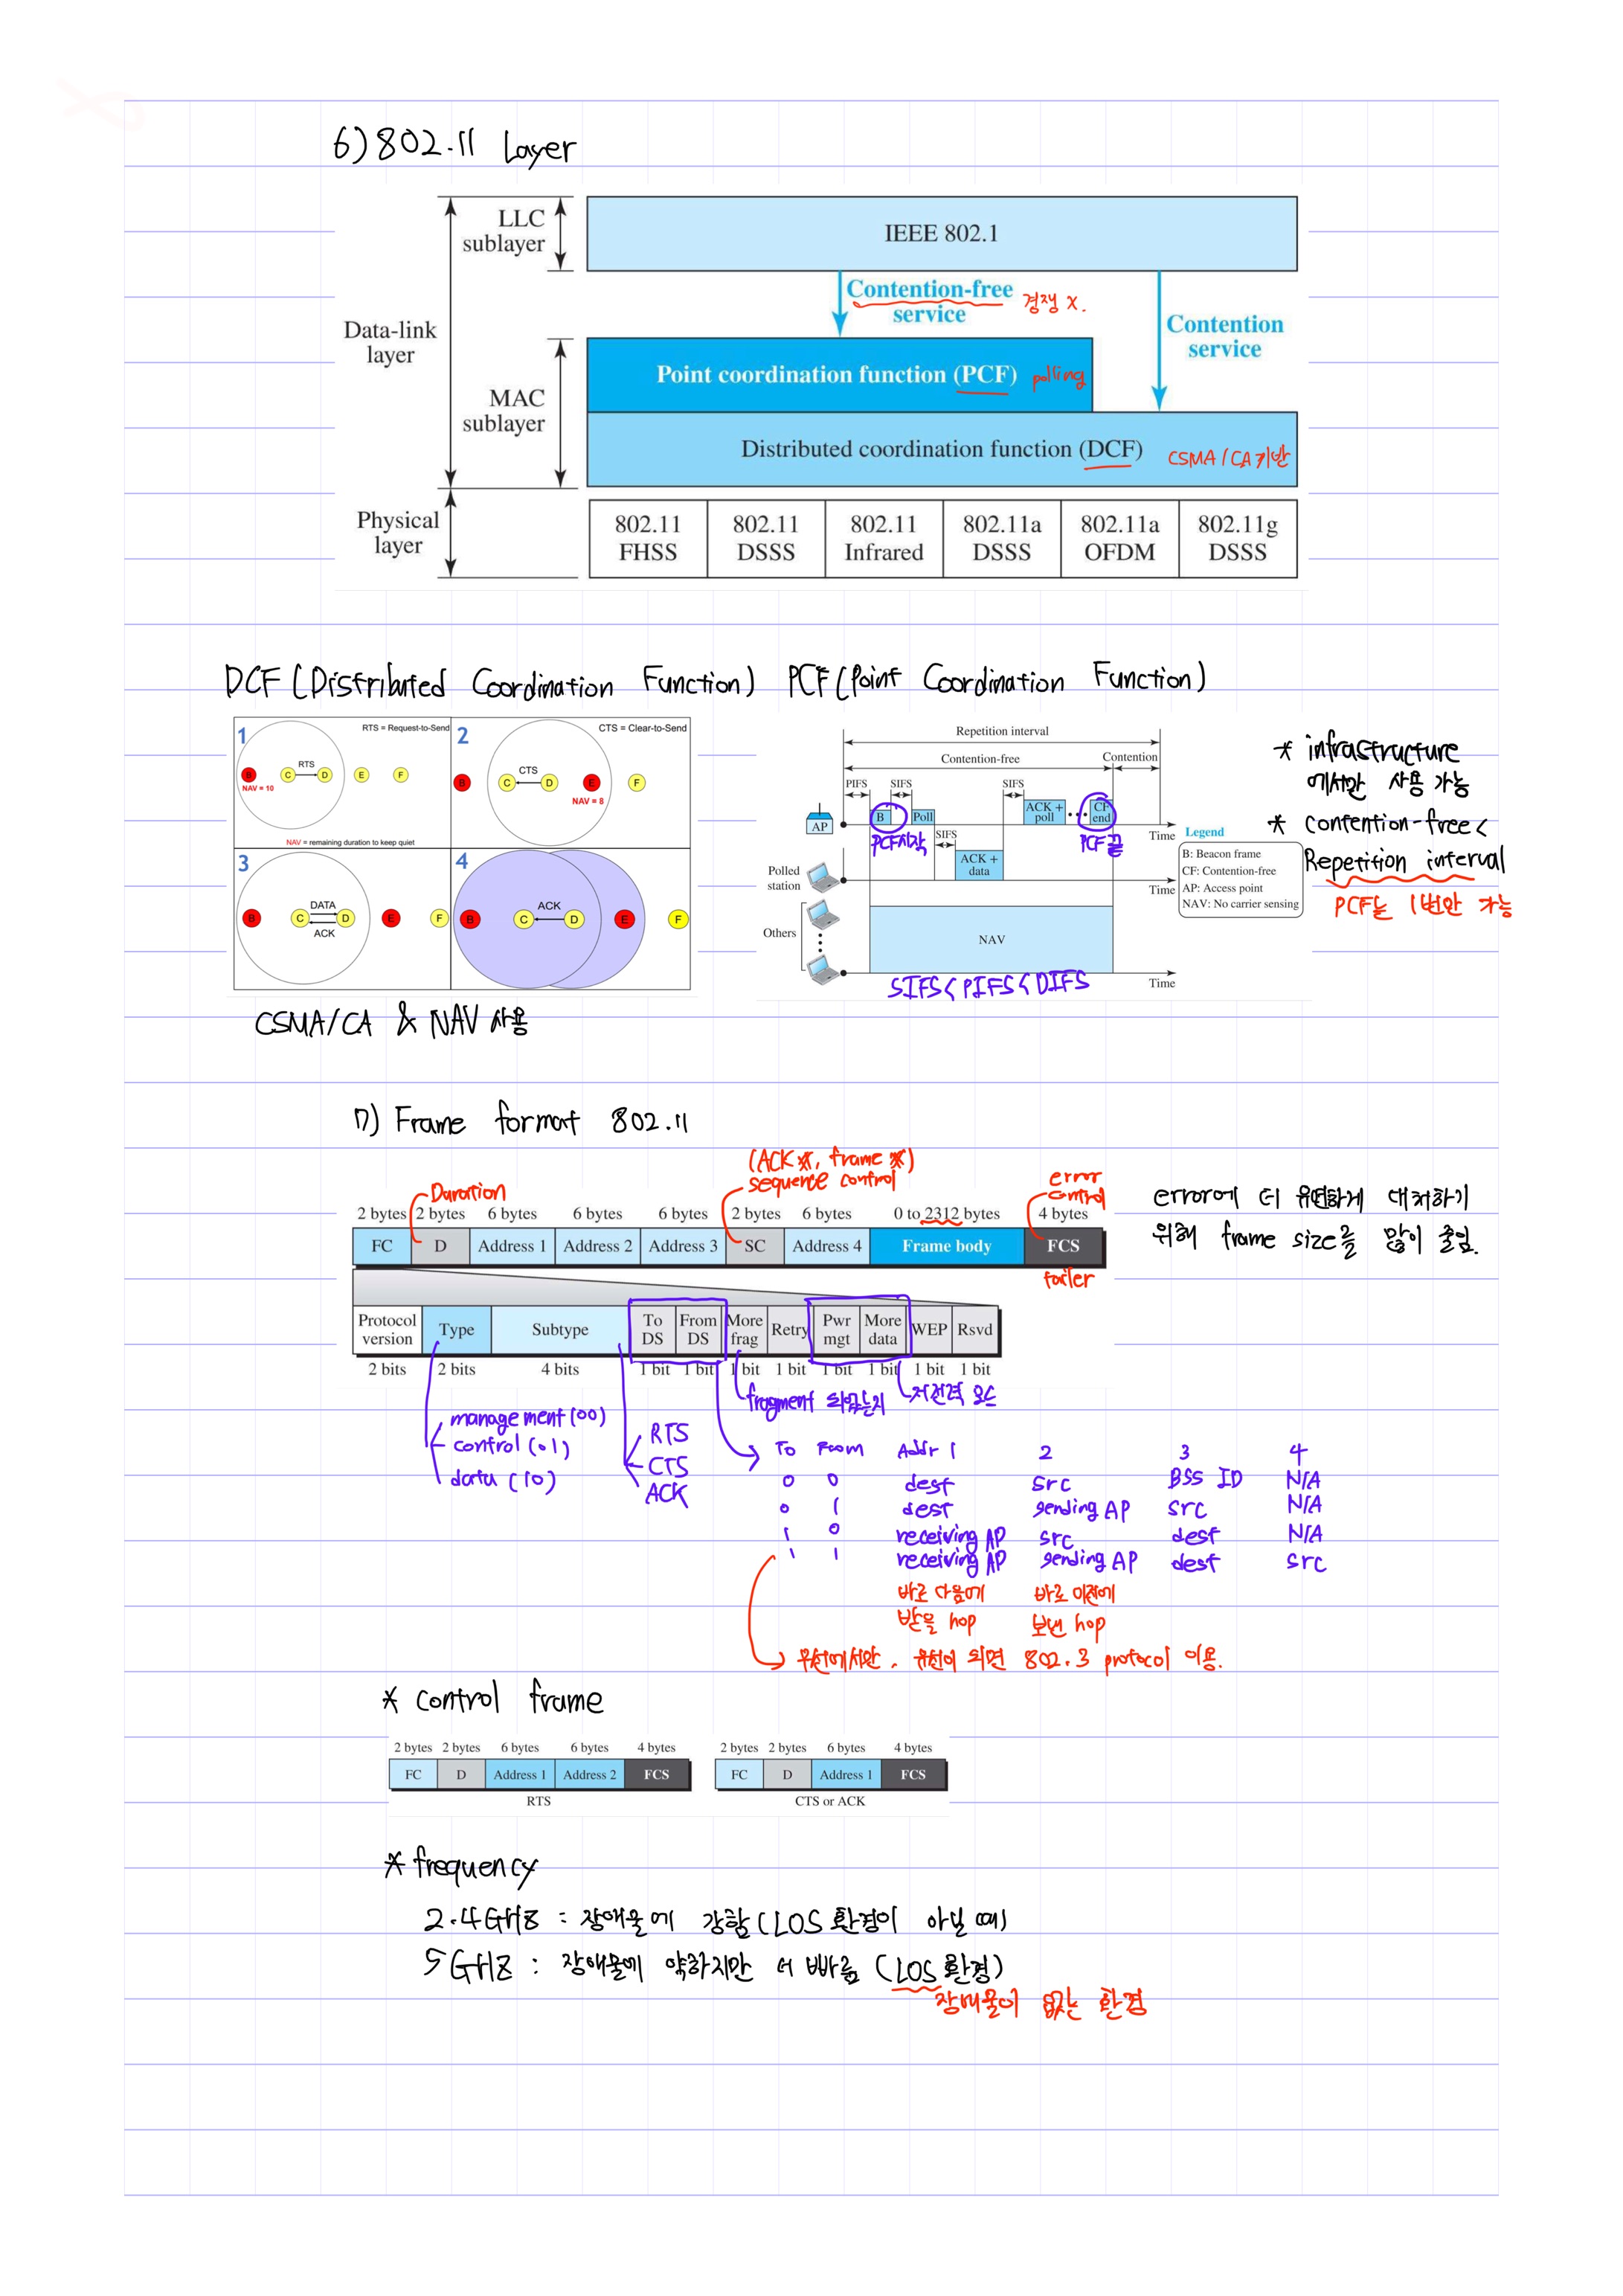 6) 802.11 Layer
LLC
sublayer
IEEE 802.1
Contention-free
service
경쟁 X.
Contention
service
Data-link
layer
Point coordination function (PCF) polling
MAC
sublayer
Distributed coordination function (DCF) CSMA/CA 기반
Physical
layer
802.11
FHSS
802.11
DSSS
802.11
Infrared
802.11a
DSSS
802.11a
OFDM
802.11g
DSSS
DCF (Distributed Coordination Function)
1
RTS = Request-to-Send
RTS
B C D E F
NAV = 10
NAV = remaining duration to keep quiet
2
CTS = Clear-to-Send
CTS
B C D E F
NAV = 8
3
DATA
B C D E F
ACK
4
ACK
B C D E F
CSMA/CA & NAV 사용
PCF (Point Coordination Function)
Repetition interval
Contention-free
Contention
PIFS
SIFS
SIFS
AP
B
Poll
ACK +
poll
CF
end
Time
PCF시작
SIFS
PCF 끝
Polled
station
ACK +
data
Time
Others
NAV
Time
SIFS < PIFS < DIFS
Legend
B: Beacon frame
CF: Contention-free
AP: Access point
NAV: No carrier sensing
* infrastructure
에서만 사용 가능
* contention-free <
Repetition interval
PCF는 1번만 가능
7) Frame format 802.11
(ACK #, frame #)
sequence control
Duration
error
control
2 bytes 2 bytes 6 bytes 6 bytes 6 bytes 2 bytes 6 bytes 0 to 2312 bytes 4 bytes
FC D Address 1 Address 2 Address 3 SC Address 4 Frame body FCS
tailer
error에 더 유연하게 대처하기
위해 frame size를 많이 줄임.
Protocol
version
Type
Subtype
To
DS
From
DS
More
frag
Retry
Pwr
mgt
More
data
WEP
Rsvd
2 bits 2 bits 4 bits 1 bit 1 bit 1 bit 1 bit 1 bit 1 bit 1 bit 1 bit
fragment 되었는지
저전력 모드
management (00)
control (01)
data (10)
RTS
CTS
ACK
To From Addr 1 2 3 4
0 0 dest src BSS ID N/A
0 1 dest sending AP src N/A
1 0 receiving AP src dest N/A
1 1 receiving AP sending AP dest src
바로 다음에
받을 hop
바로 이전에
보낸 hop
무선에서만. 유선이 되면 802.3 protocol 이용.
* control frame
2 bytes 2 bytes 6 bytes 6 bytes 4 bytes
FC D Address 1 Address 2 FCS
RTS
2 bytes 2 bytes 6 bytes 4 bytes
FC D Address 1 FCS
CTS or ACK
* frequency
2.4GHz : 장애물에 강함 (LOS 환경이 아닐 때)
5GHz : 장애물에 약하지만 더 빠름 (LOS 환경)
장애물이 없는 환경